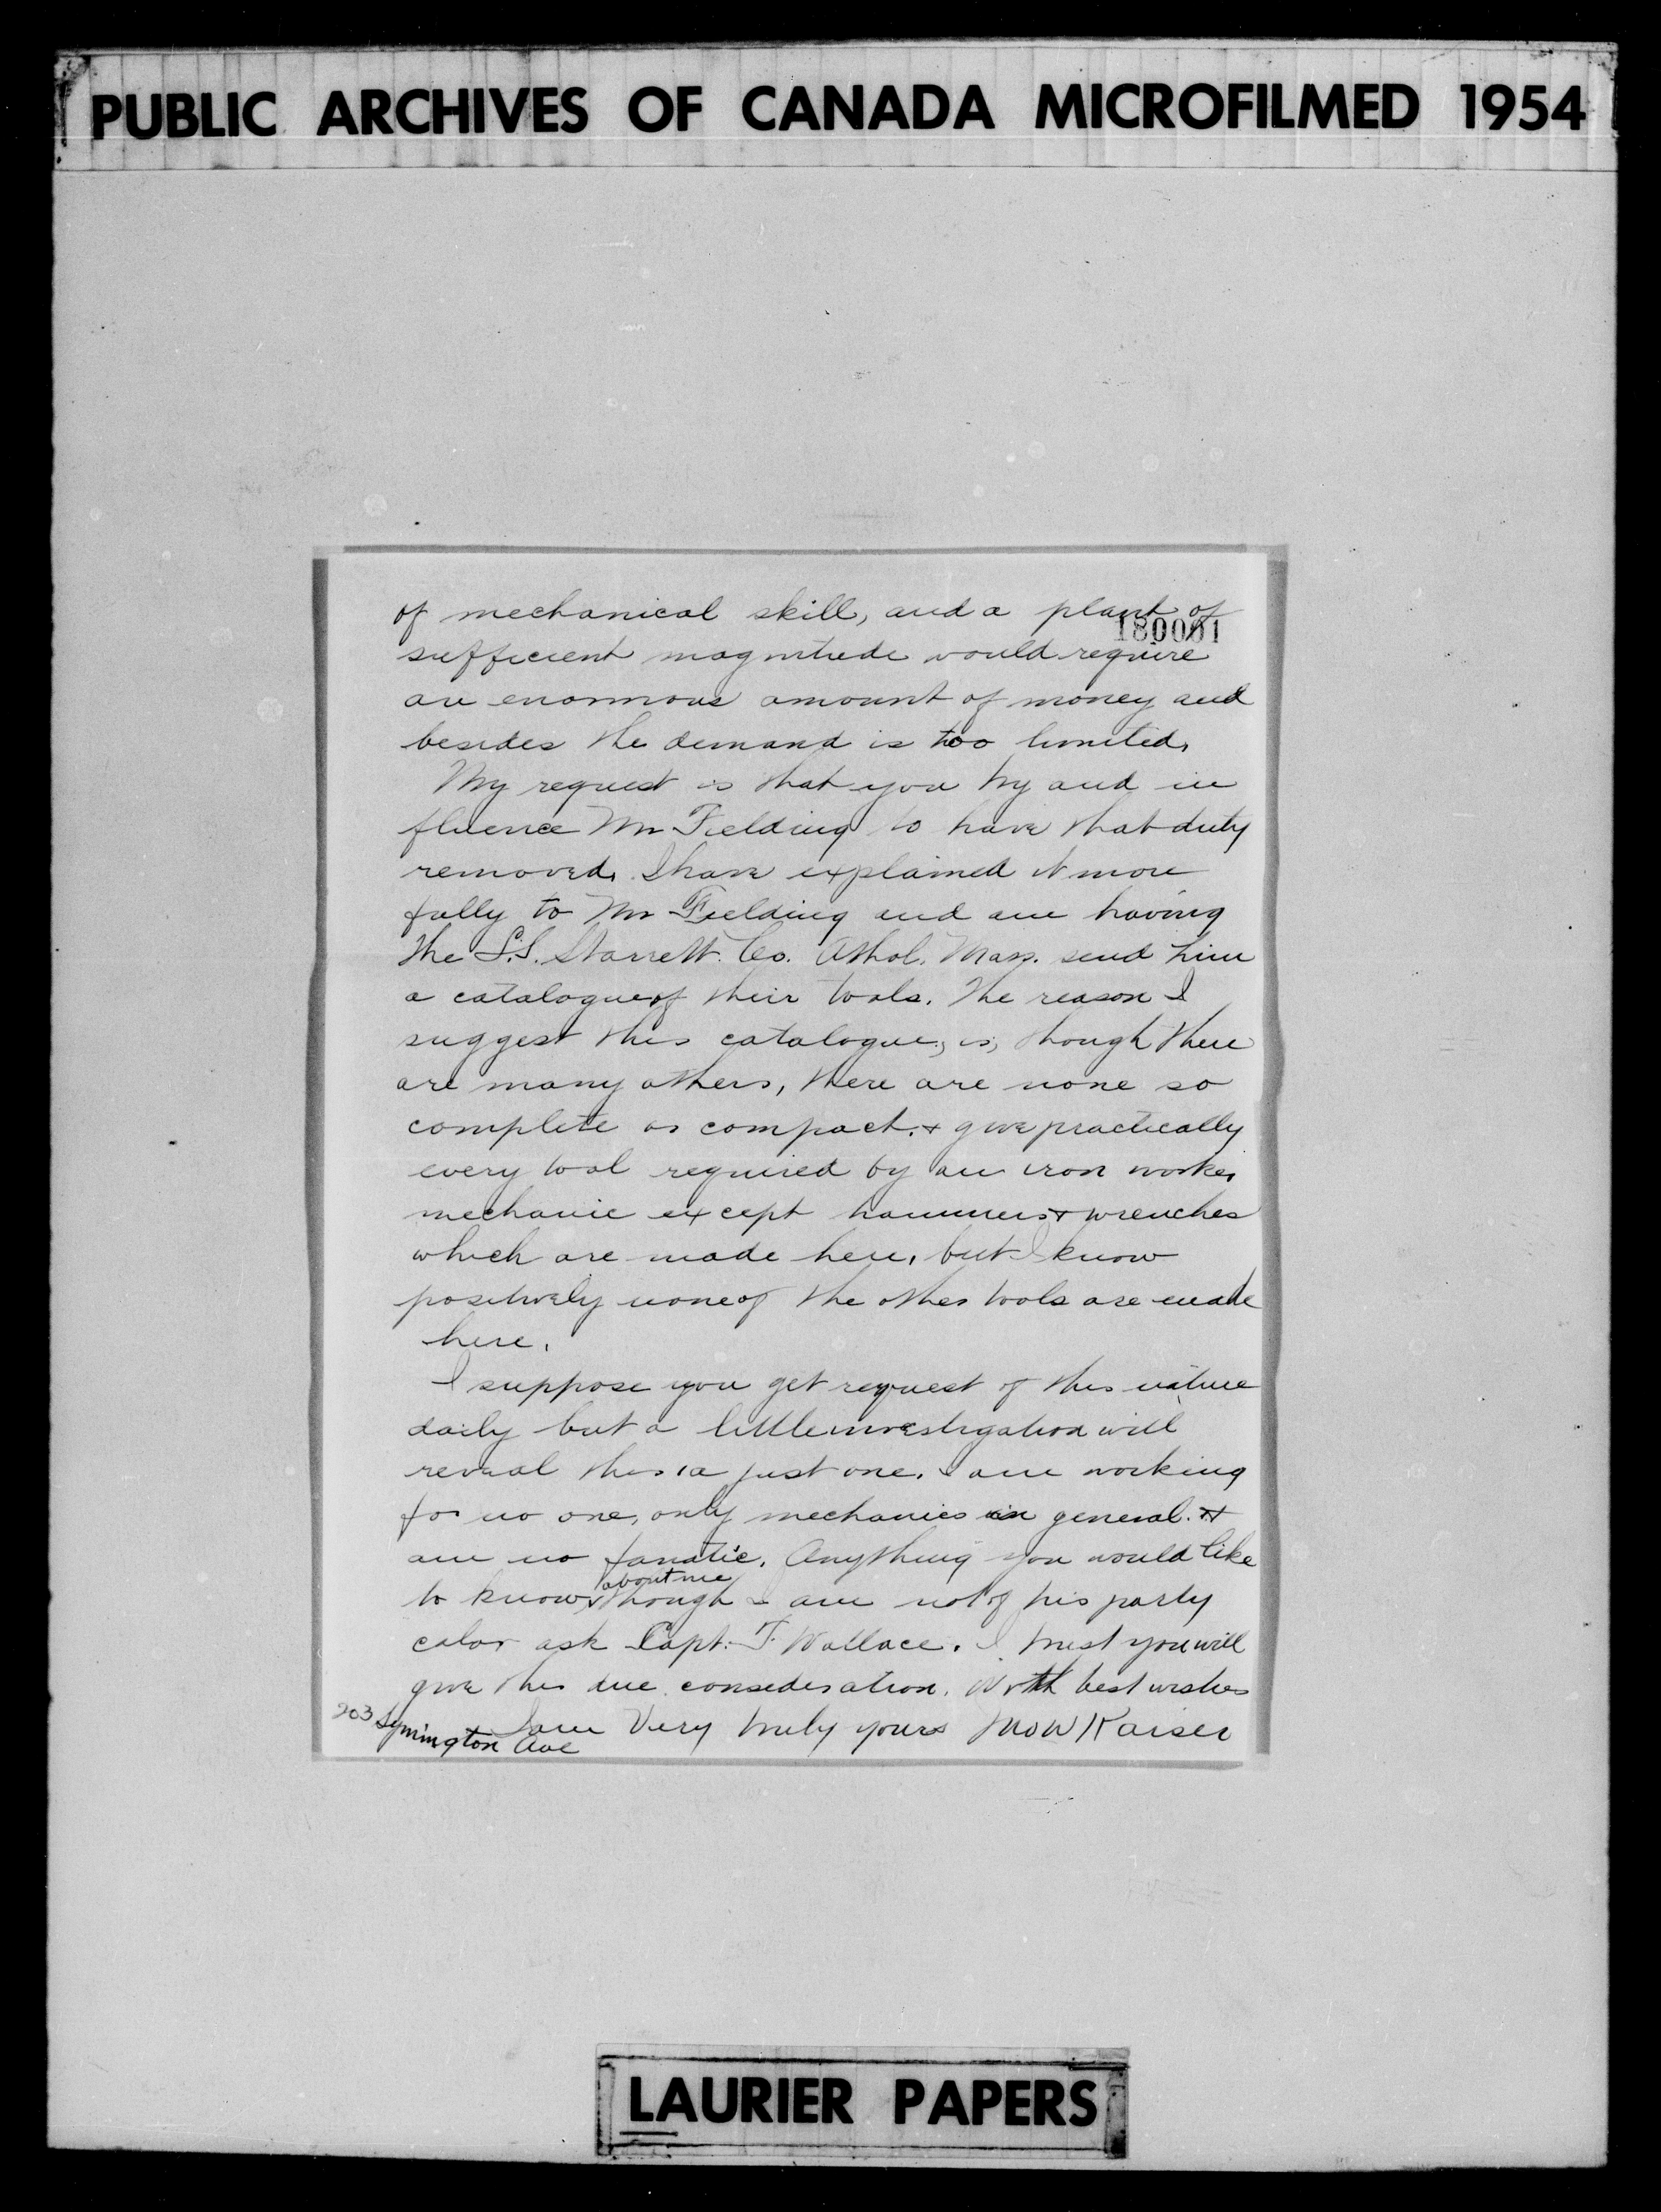 PUBLIC ARCHIVES OF CANADA MICROFILMED 1954
of mechanical skill, and a plant of
180001
sufficient magnitude would require
an enormous amount of money and
besides the demand is too limited.
My request is that you try and in
fluence Mr Fielding to have that duty
removed. I have explained it more
fully to Mr Fielding and am having
the L.S. Starrett. Co. Athol. Mass. send him
a catalogue of their tools. The reason I
suggest this catalogue, is, though there
are many others, there are none so
complete or compact. & give practically
every tool required by an iron worker
mechanic except hammers & wrenches
which are made here, but I know
positively none of the other tools are made
here.
I suppose you get request of this nature
daily but a little investigation will
reveal this is a just one. I am working
for no one, only mechanics in general. &
am no fanatic. Anything you would like
about me
to know, though I am not of his party
color ask Capt. T. Wallace. I trust you will
give this due consideration. With best wishes
I am Very truly yours Jno W Kaiser
203 Symington Ave
LAURIER PAPERS